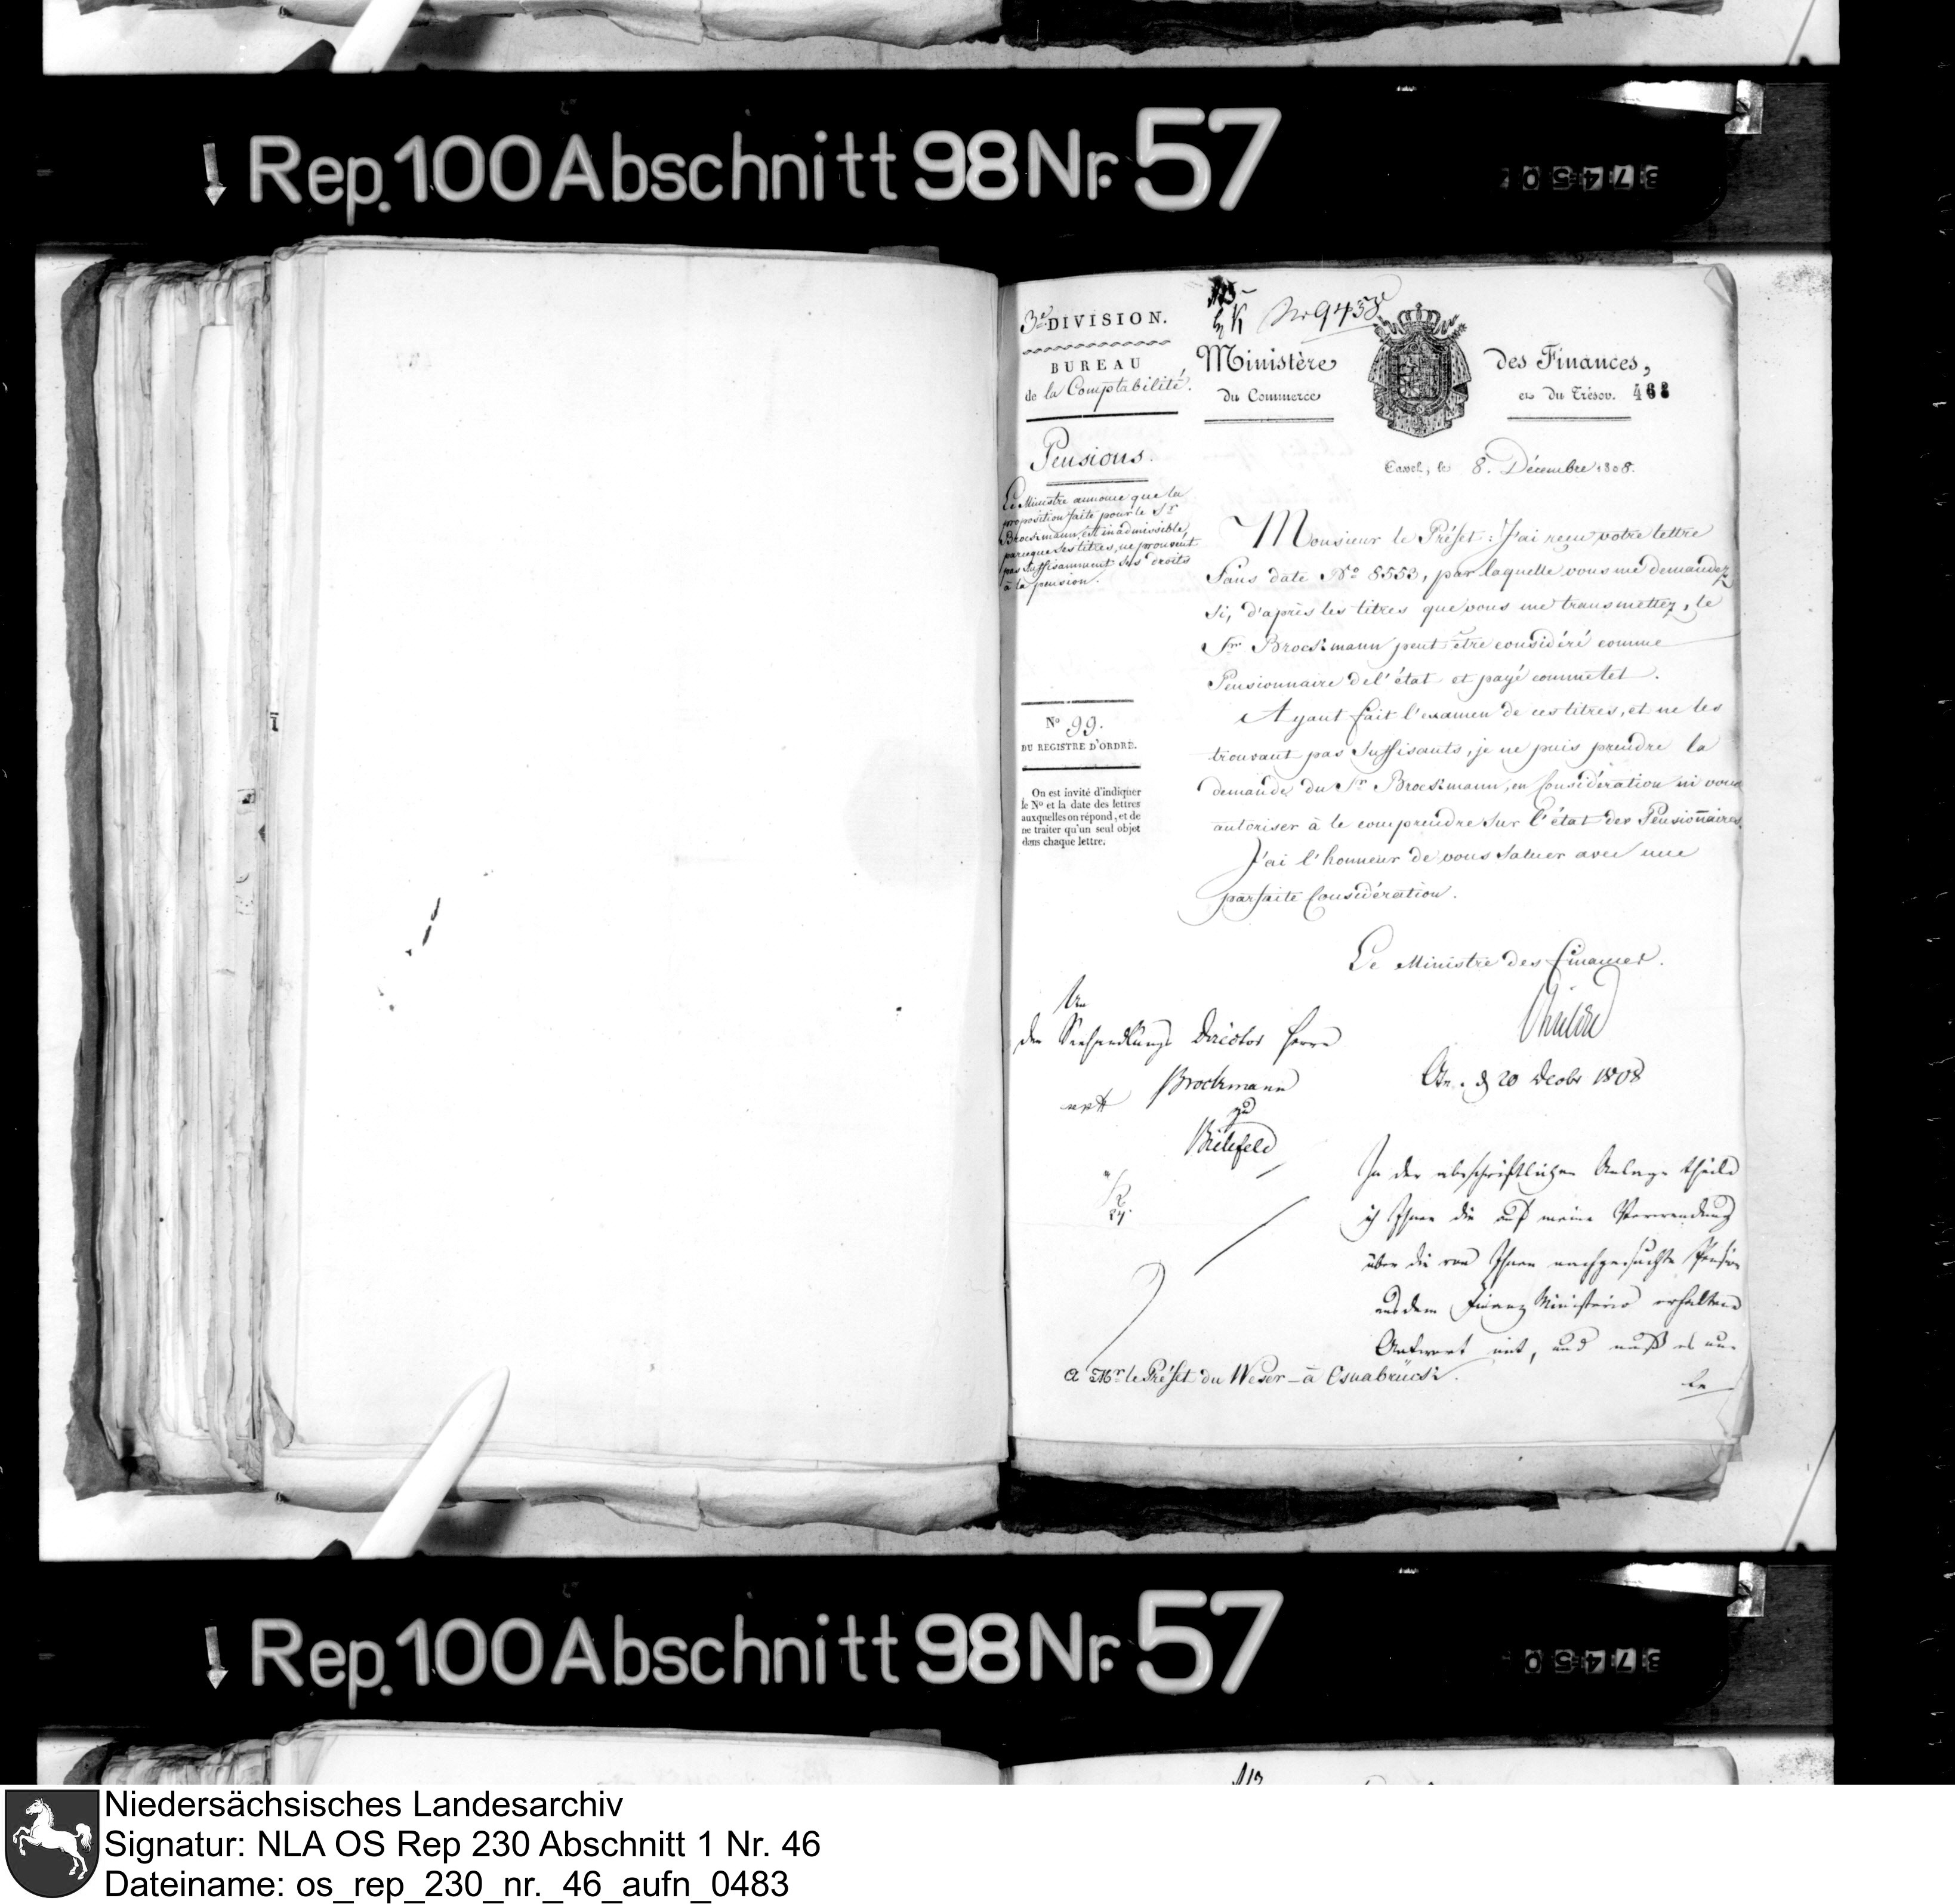 Rep. 100 Abschnitt 98 Nr. 57
3e DIVISION.
BUREAU
de la Comptabilité.
No 9458
Ministère des Finances,
du Commerce et du Trésor.
468
Pensions.
Cassel, le 8. Décembre 1808.
Le Ministre annonce que la
proposition faite pour le Sr
Brockmann, est inadmissible,
parceque ses titres, ne prouvent
pas suffisamment ses droits
à la pension.
No 99.
DU REGISTRE D'ORDRE.
On est invité d'indiquer
le No et la date des lettres
auxquelles on répond, et de
ne traiter qu'un seul objet
dans chaque lettre.
Monsieur le Préfet: J'ai reçu votre lettre
Sans date No 8553, par laquelle vous me demandez
si, d'après les titres que vous me transmettez, le
Sr Brockmann peut être considéré comme
Pensionnaire de l'état et payé comme tel.
Ayant fait l'examen de ces titres, et ne les
trouvant pas suffisants, je ne puis prendre la
demande du Sr Brockmann, en Considération ni vous
autoriser à le comprendre sur l'état des Pensionnaires.
J'ai l'honneur de vous saluer avec une
parfaite Considération.
Le Ministre des Finances.
An
den Seehandlungs Director Herrn
Brockmann
zu
Bielefeld
d 20 Decbr 1808
In der abschriftlichen Anlage theile
ich Ihnen die auf meine Verwendung
über die von Ihnen nachgesuchte Pension
aus dem Finanz Ministerio erhaltene
Antwort mit, und muß es nun
A Mr le Préfet du Weser - à Osnabrück.
Rep. 100 Abschnitt 98 Nr. 57
Niedersächsisches Landesarchiv
Signatur: NLA OS Rep 230 Abschnitt 1 Nr. 46
Dateiname: os_rep_230_nr._46_aufn_0483